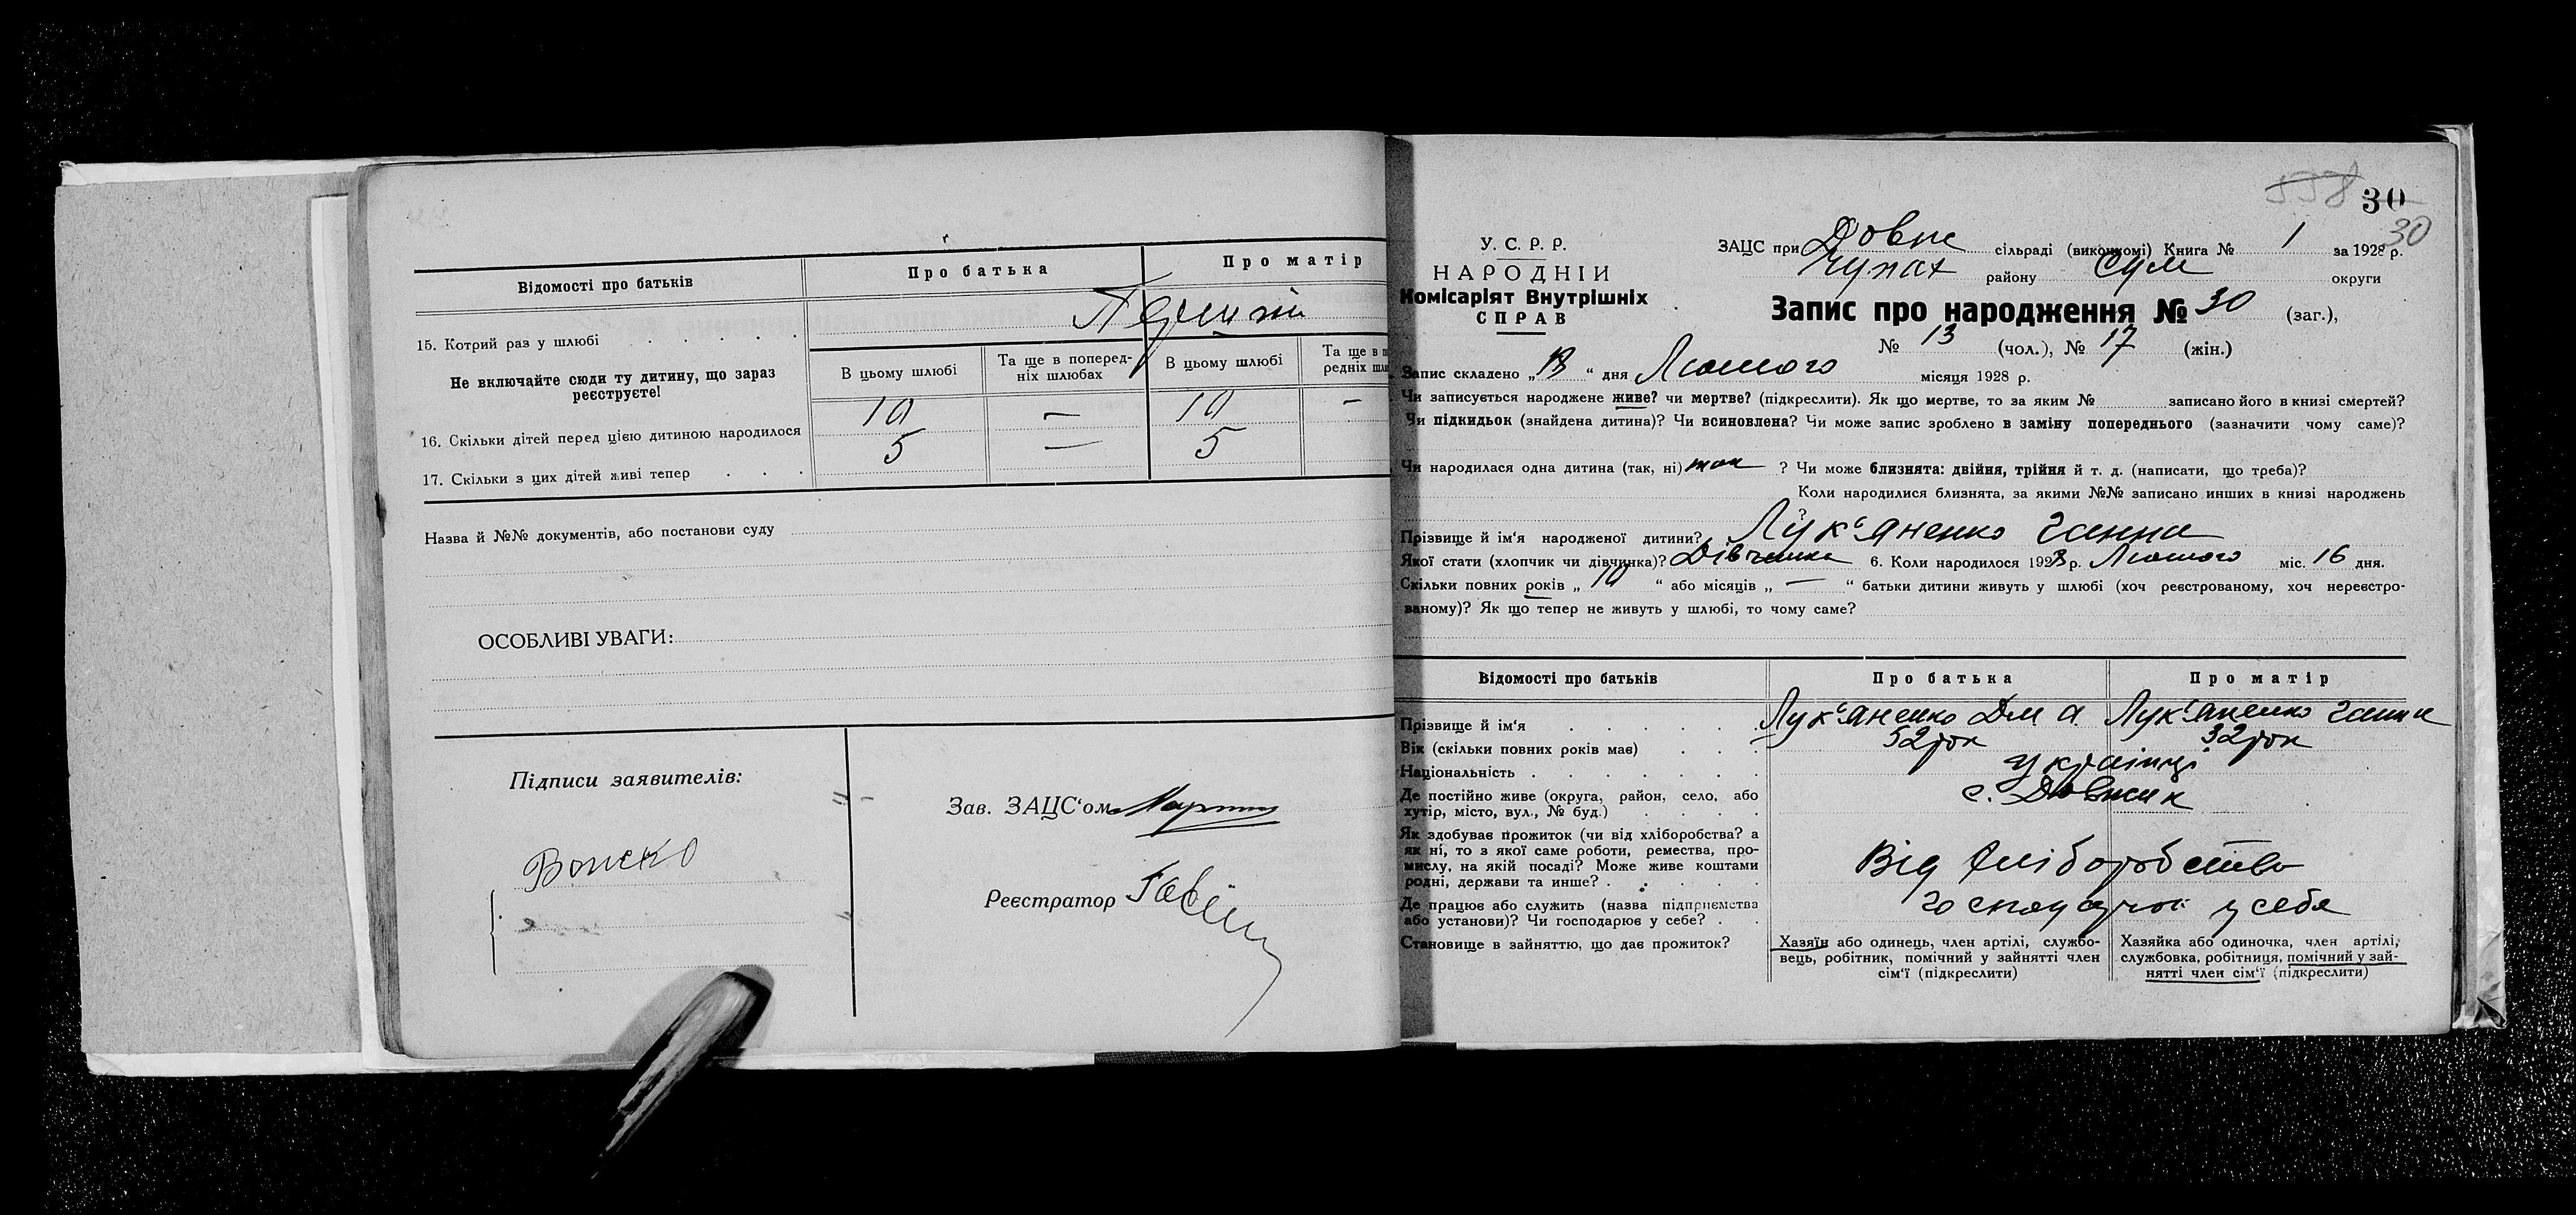 Відомості про батьків
Про батька
Про матір
15. Котрий раз у шлюбі . . . . .
Не включайте сюди ту дитину, що зараз
реєструєте!
В цьому шлюбі
Та ще в поперед-
ніх шлюбах
В цьому шлюбі
Та ще в п
редніх шлю
16. Скільки дітей перед цією дитиною народилося 10 — 10 —
17. Скільки з цих дітей живі тепер . . . 5 — 5
Назва й №№ документів, або постанови суду
ОСОБЛИВІ УВАГИ:
Підписи заявителів:
Зав. ЗАЦС‘ом
Реєстратор
558 30
30
У. С. Р. Р.
НАРОДНІЙ
Комісаріят Внутрішніх
СПРАВ
ЗАЦС при Довж сільраді (виконкомі) Книга № 1 за 1928 р.
району Сум округи
Запис про народження № 30 (заг.),
№ 13 (чол.), № 17 (жін.)
Запис складено „ “ дня Лютого місяця 1928 р.
Чи записується народжене живе? чи мертве? (підкреслити). Як що мертве, то за яким № записано його в книзі смертей?
Чи підкидьок (знайдена дитина)? Чи всиновлена? Чи може запис зроблено в заміну попереднього (зазначити чому саме)?
Чи народилася одна дитина (так, ні) так ? Чи може близнята: двійня, трійня й т. д. (написати, що треба)?
Коли народилися близнята, за якими №№ записано инших в книзі народжень
?
Прізвище й ім‘я народженої дитини? Лук‘яненко Ганна
Якої стати (хлопчик чи дівчинка)? Дівчинка 6. Коли народилося 1928 р. Лютого міс. 16 дня.
Скільки повних років „ 10 “ або місяців „ — “ батьки дитини живуть у шлюбі (хоч реєстрованому, хоч нереєстро-
ваному)? Як що тепер не живуть у шлюбі, то чому саме?
Відомості про батьків
Про батька
Про матір
Прізвище й ім‘я . . . . . . Лук‘яненко Дм. А. Лук‘яненко Ганна
Вік (скільки повних років має) . . . 52 рок 32 рок
Національність . . . . . . . українці
Де постійно живе (округа, район, село, або
хутір, місто, вул., № буд.) . . . . с. Довжик
Як здобуває прожиток (чи від хліборобства? а
як ні, то з якої саме роботи, ремества, про-
мислу, на якій посаді? Може живе коштами
родні, держави та инше? . . . . . Від хліборобства
Де працює або служить (назва підприємства
або установи)? Чи господарює у себе? . . у себе
Становище в зайняттю, що дає прожиток?
Хазяїн або одинець, член артілі, службо-
вець, робітник, помічний у зайнятті член
сім‘ї (підкреслити)
Хазяйка або одиночка, член артілі,
службовка, робітниця, помічний у зай-
нятті член сім‘ї (підкреслити)